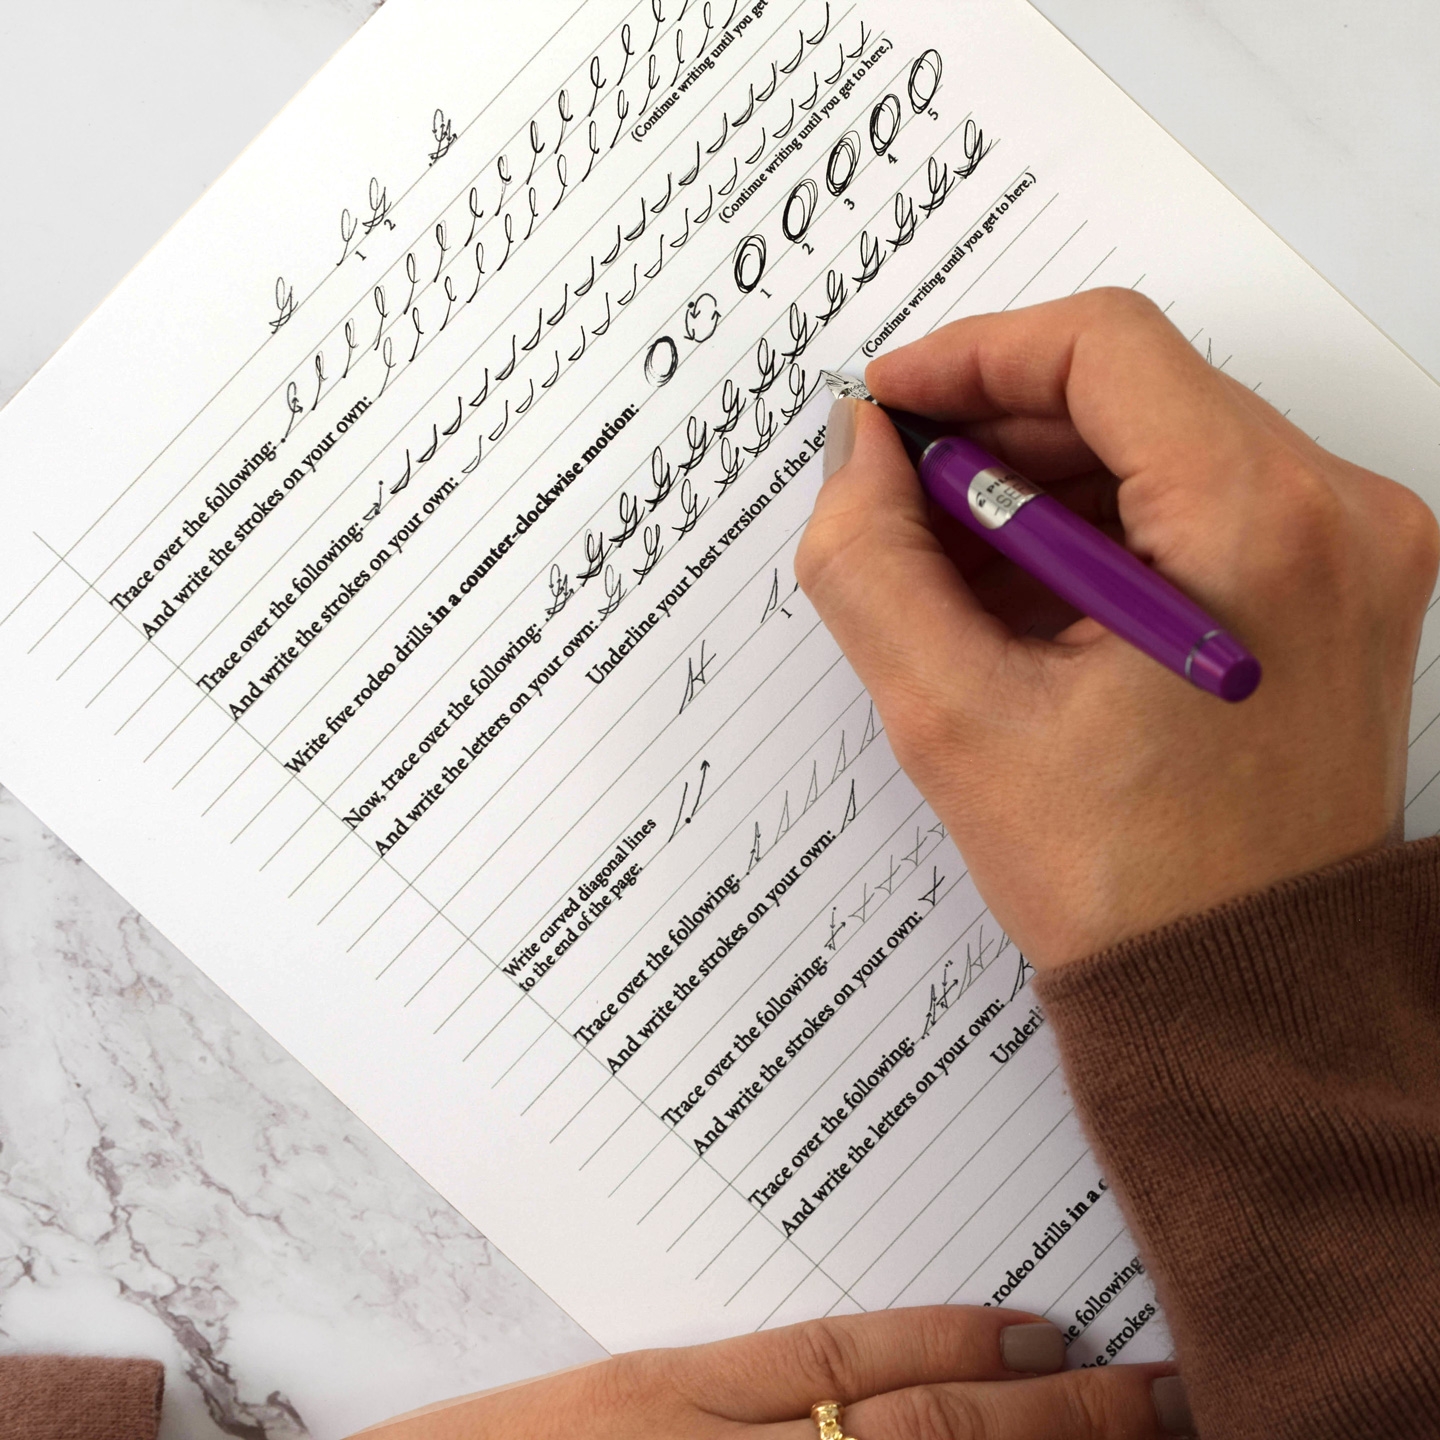 1 2
Trace over the following:
And write the strokes on your own:
(Continue writing until you get
Trace over the following:
And write the strokes on your own:
(Continue writing until you get to here.)
(Continue writing until you get to here.)
Write five rodeo drills in a counter-clockwise motion:
1 2 3 4 5
Now, trace over the following: G G G G G G G G G G G G
And write the letters on your own: G G G G G G
(Continue writing until you get to here.)
Underline your best version of the
H
1
Write curved diagonal lines
to the end of the page:
Trace over the following:
And write the strokes on your own:
Trace over the following:
And write the strokes on your own:
Trace over the following: H H
And write the letters on your own:
rodeo drills in a
following:
strokes